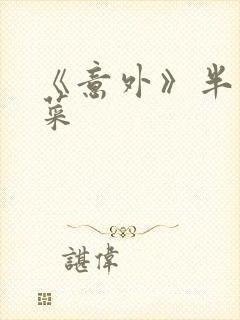 《意外》半
菜
諶偉